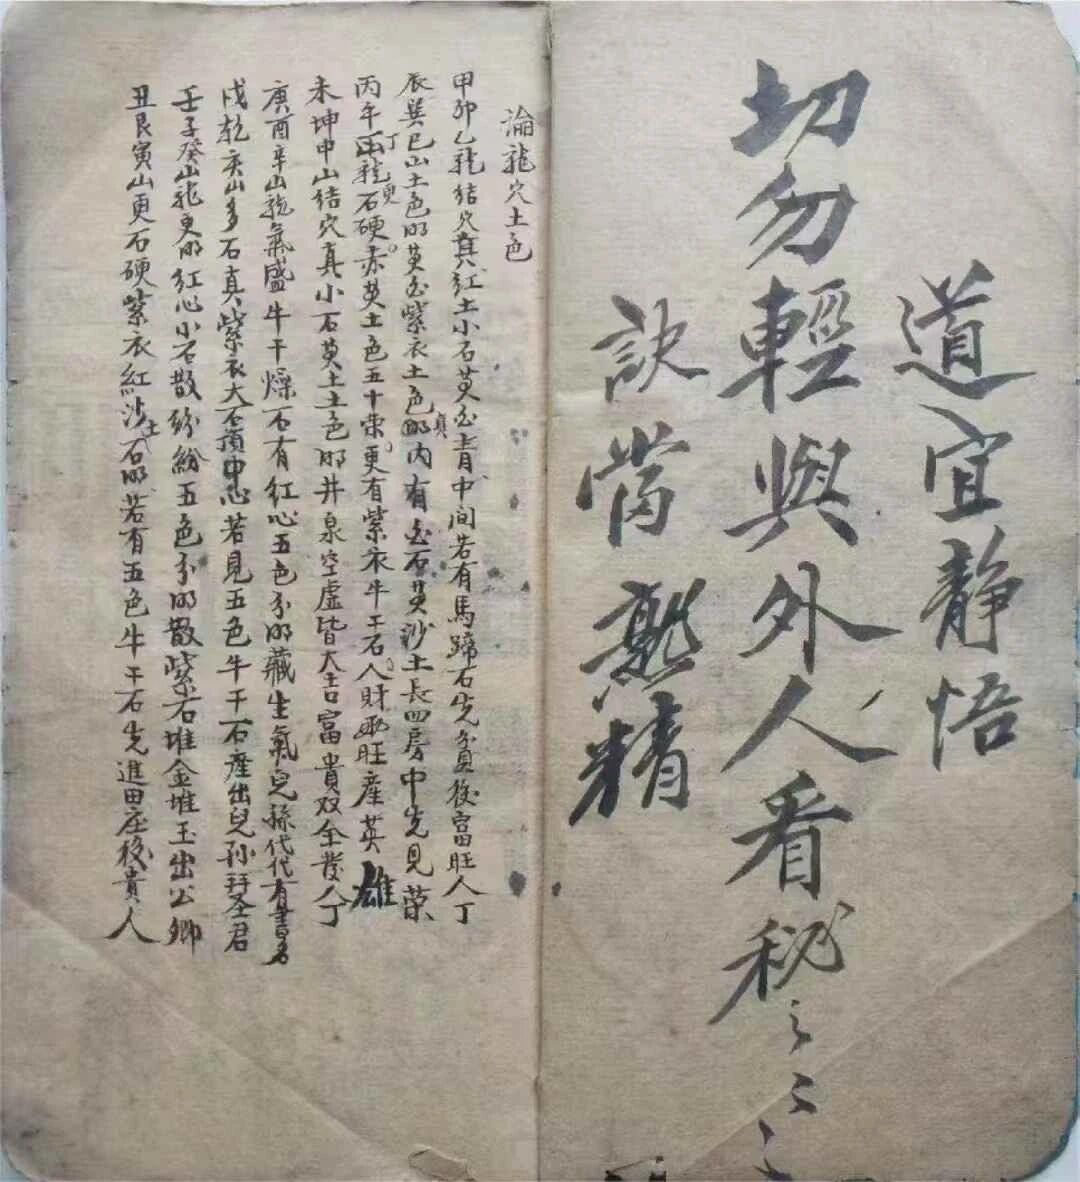 道宜靜悟
切勿輕與外人看秘〻〻〻
訣當熟精
論龍穴土色
甲卯乙龍结穴真红土小石黄白青中间若有馬蹄石先貧後富旺人丁
辰巽巳山土色明黄白紫衣土色明真内有白石黄沙土長四房中先見荣
丙午丁龍石更硬赤黄土色五十荣更有紫衣牛干石人財兩旺産英雄
未坤申山结穴真小石黄土土色明井泉空虚皆大吉富貴双全發人丁
庚酉辛山龍氣盛牛干燥石有红心五色分明藏生氣兒孫代代有書名
戌乾亥山多石真紫衣大石頂中心若見五色牛干石産出兒孙拜圣君
壬子癸山龍更明红心小石散紛紛五色分明散紫石堆金堆玉出公卿
丑艮寅山更石硬紫衣紅沙土石明若有五色牛干石先進田庄後貴人